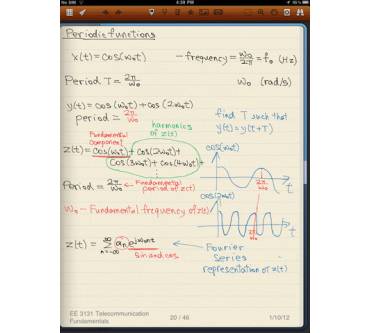 No SIM 4:59 PM 95%
Periodic functions
x(t) = cos(ω₀t) - frequency = ω₀/2π = f₀ (Hz)
Period T = 2π/ω₀ ω₀ (rad/s)
y(t) = cos(ω₀t) + cos(2ω₀t)
period = 2π/ω₀
find T such that
y(t) = y(t+T)
harmonics
of z(t)
Fundamental
component
z(t) = cos(ω₀t) + cos(2ω₀t) +
cos(3ω₀t) + cos(4ω₀t) +
cos(ω₀t)
2π/ω₀
t
Period = 2π/ω₀ ← Fundamental
period of z(t)
cos(2ω₀t)
ω₀ - Fundamental frequency of z(t)
t
2π/ω₀
z(t) = ∞ Σ n=-∞ aₙ e^jω₀nt
sin and cos
Fourier
Series
representation of z(t)
EE 3131 Telecommunication
Fundamentals
20 / 46
1/10/12